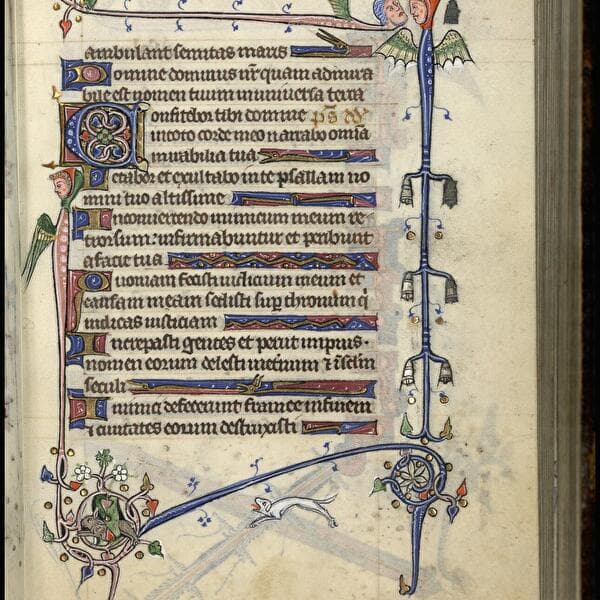 ambulant semitas maris
Domine dominus nr̄ quam admira
bile est nomen tuum in uniuersa terra
Confitebor tibi domine ps̄ dd̄
in toto corde meo narrabo omīa
mirabilia tua
Letabor et exultabo in te psallam no
mini tuo altissime
In conuertendo inimicum meum re
trorsum: infirmabuntur et peribunt
a facie tua
Quoniam fecisti iudicium meum et
causam meam sedisti sup̄ thronum q̄
iudicas iusticiam
Increpasti gentes et periit impius.
nomen eorum delesti in eternum ⁊ ī sc̄lm
seculi
Inimici defecerunt framee in finem
⁊ ciuitates eorum destruxisti